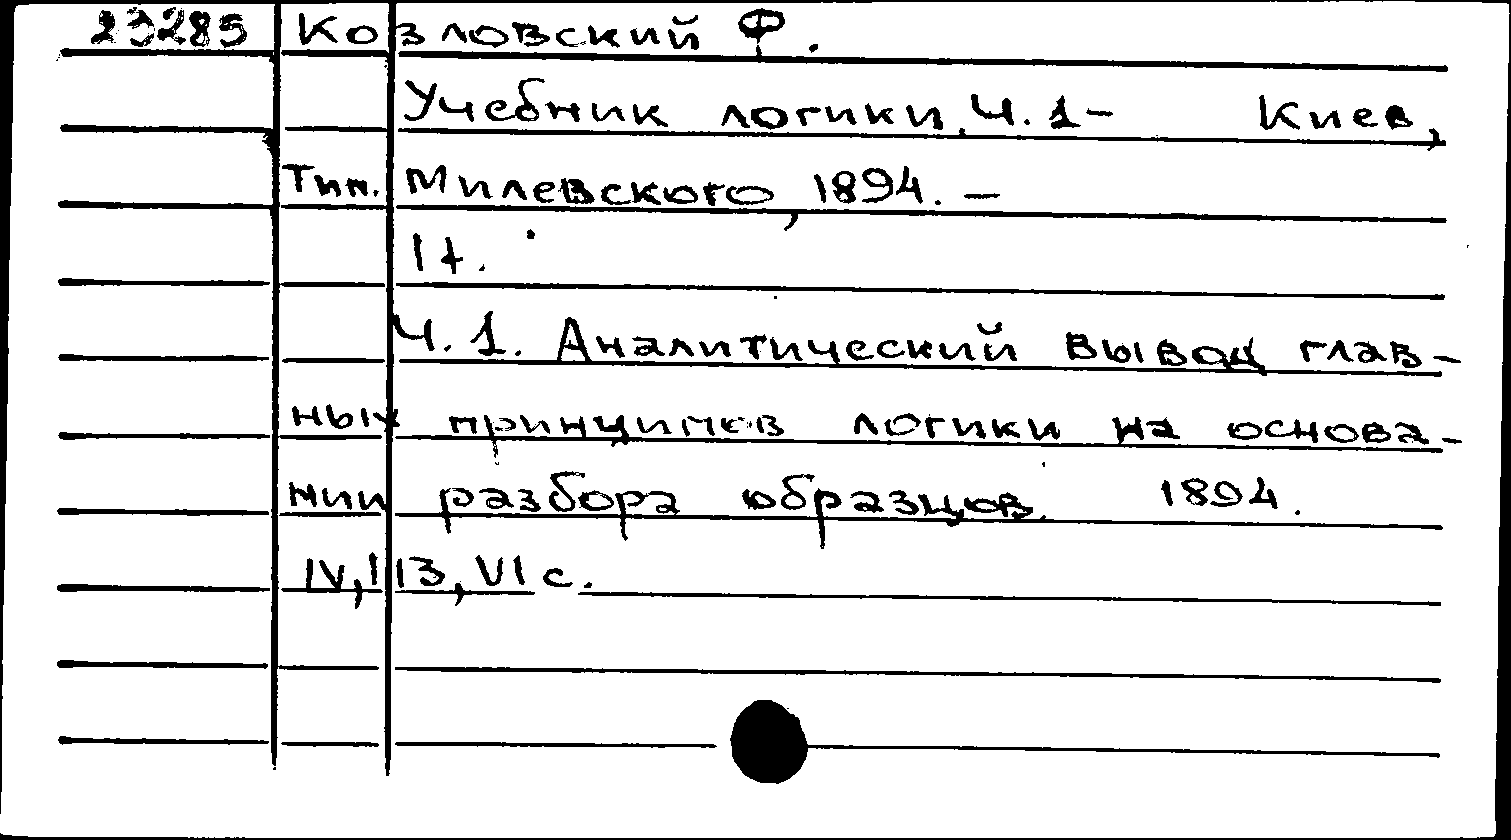 23285 Козловский Ф.
Учебник логики. Ч. 1- Киев,
Тип. Милевского, 1894. –
1 т.
Ч. 1. Аналитический вывод глав-
ных принципов логики на основа-
нии разбора образцов. 1894.
IV, 113, VI с.